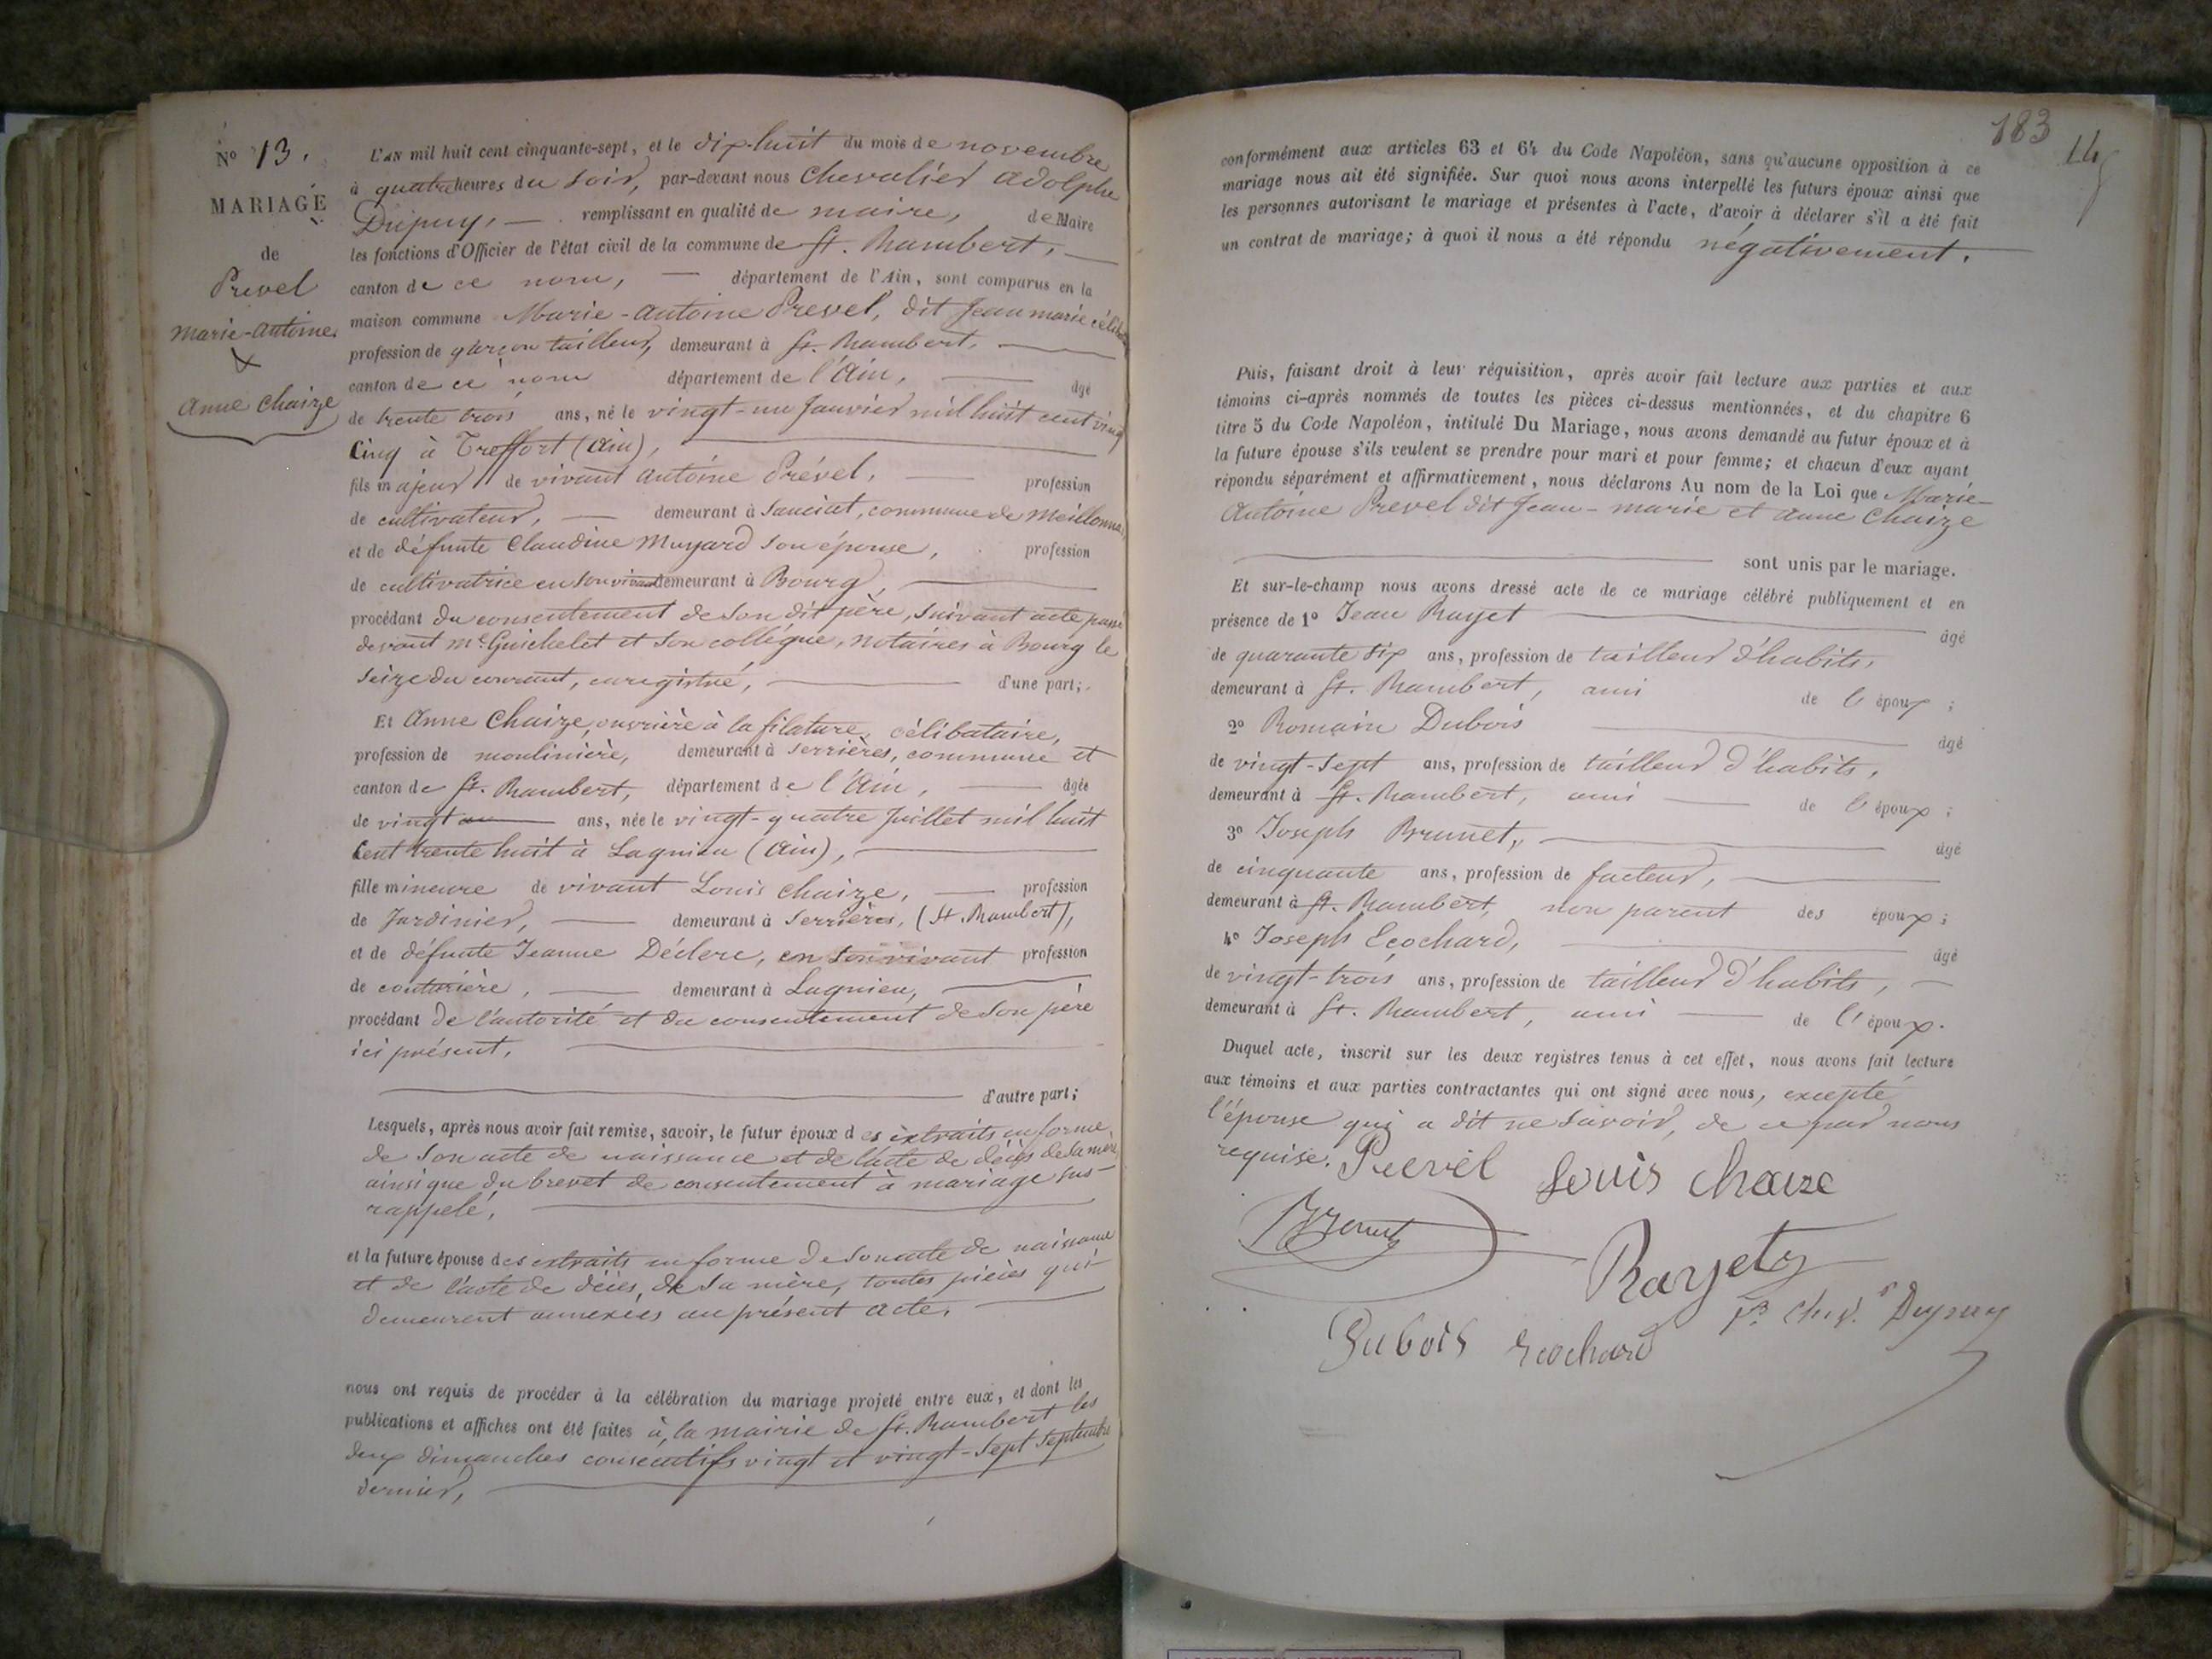 N° 13.
MARIAGE
de
Prevel
Marie-Antoine
&
Anne Chaize
L'AN mil huit cent cinquante-sept, et le dix-huit du mois de novembre
à quatre heures du soir, par-devant nous Chevalier Adolphe
Dupuy, remplissant en qualité de maire, de Maire
les fonctions d'Officier de l'état civil de la commune de St. Rambert,
canton de ce nom, département de l'Ain, sont comparus en la
maison commune Marie-Antoine Prevel, dit Jean marie célib
profession de garçon tailleur, demeurant à St. Rambert,
canton de ce nom département de l'Ain, âgé
de trente trois ans, né le vingt-un Janvier mil huit cent vingt
Cinq à Treffort (Ain),
fils majeur de vivant Antoine Prével, profession
de cultivateur, demeurant à Sanciat, commune de Meillonnas
et de défunte Claudine Muyard son épouse, profession
de cultivatrice en son vivant demeurant à Bourg,
procédant du consentement de son dit père, suivant acte passé
devant Me Guichelet et son collègue, notaires à Bourg le
seize du courant, enregistré, d'une part;
Et Anne Chaize, ouvrière à la filature, célibataire,
profession de moulinière, demeurant à Serrières, commune et
canton de St. Rambert, département de l'Ain, âgée
de vingt ans, née le vingt-quatre Juillet mil huit
Cent trente huit à Lagnieu (Ain),
fille mineure de vivant Louis Chaize, profession
de Jardinier, demeurant à Serrières, (St. Rambert),
et de défunte Jeanne Déclerc, en son vivant profession
de couturière, demeurant à Lagnieu,
procédant de l'autorité et du consentement de son père
ici présent,
d'autre part;
Lesquels, après nous avoir fait remise, savoir, le futur époux des extraits en forme
de son acte de naissance et de l'acte de décès de sa mère
ainsi que du brevet de consentement à mariage sus-
rappelé,
et la future épouse des extraits en forme de son acte de naissance
et de l'acte de décès, de sa mère, toutes pièces qui
demeurent annexées au présent acte,
nous ont requis de procéder à la célébration du mariage projeté entre eux, et dont les
publications et affiches ont été faites à la mairie de St. Rambert les
deux dimanches consécutifs vingt et vingt-sept septembre
dernier,
183
conformément aux articles 63 et 64 du Code Napoléon, sans qu'aucune opposition à ce
mariage nous ait été signifiée. Sur quoi nous avons interpellé les futurs époux ainsi que
les personnes autorisant le mariage et présentes à l'acte, d'avoir à déclarer s'il a été fait
un contrat de mariage; à quoi il nous a été répondu négativement.
Puis, faisant droit à leur réquisition, après avoir fait lecture aux parties et aux
témoins ci-après nommés de toutes les pièces ci-dessus mentionnées, et du chapitre 6
titre 5 du Code Napoléon, intitulé Du Mariage, nous avons demandé au futur époux et à
la future épouse s'ils veulent se prendre pour mari et pour femme; et chacun d'eux ayant
répondu séparément et affirmativement, nous déclarons Au nom de la Loi que Marie-
Antoine Prevel dit Jean-marie et Anne Chaize
sont unis par le mariage.
Et sur-le-champ nous avons dressé acte de ce mariage célébré publiquement et en
présence de 1° Jean Rayet âgé
de quarante six ans, profession de tailleur d'habits,
demeurant à St. Rambert, ami de l'époux;
2° Romain Dubois âgé
de vingt-sept ans, profession de tailleur d'habits,
demeurant à St. Rambert, ami de l'époux;
3° Joseph Brunet, âgé
de cinquante ans, profession de facteur,
demeurant à St. Rambert, non parent des époux;
4° Joseph Ecochard, âgé
de vingt-trois ans, profession de tailleur d'habits,
demeurant à St. Rambert, ami de l'époux.
Duquel acte, inscrit sur les deux registres tenus à cet effet, nous avons fait lecture
aux témoins et aux parties contractantes qui ont signé avec nous, excepté
l'épouse qui a dit ne savoir, de ce par nous
requise. Prevel Louis Chaize
Brunet
Rayet
Dubois Ecochard Chev. Dupuy